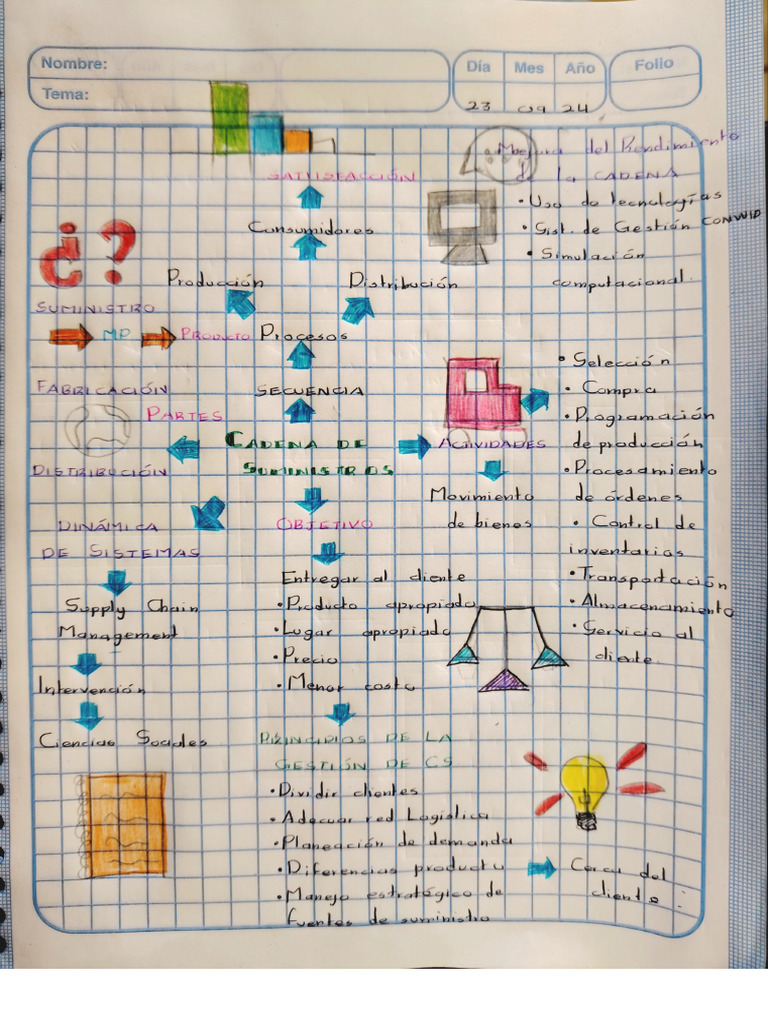 Nombre:
Tema:
Día Mes Año
Folio
23 09 24
Mejora del Rendimiento
de la CADENA
• Uso de tecnologías
• Sist. de Gestión
• Simulación
computacional.
SATISFACCIÓN
Consumidores
Producción
Distribución
¿?
SUMINISTRO
MP
PRODUCTO
Procesos
FABRICACIÓN
SECUENCIA
PARTES
CADENA DE
SUMINISTROS
ACTIVIDADES
• Selección
• Compra
• Programación
de producción
• Procesamiento
de órdenes
• Control de
inventarios
• Transportación
• Almacenamiento
• Servicio al
cliente.
DISTRIBUCIÓN
Movimiento
de bienes
DINÁMICA
DE SISTEMAS
OBJETIVO
Supply Chain
Management
Intervención
Ciencias Sociales
Entregar al cliente
• Producto apropiado
• Lugar apropiado
• Precio
• Menor costo
PRINCIPIOS DE LA
GESTIÓN DE CS
• Dividir clientes
• Adecuar red Logística
• Planeación de demanda
• Diferencias producto
• Manejo estratégico de
fuentes de suministro
Cerca del
cliente